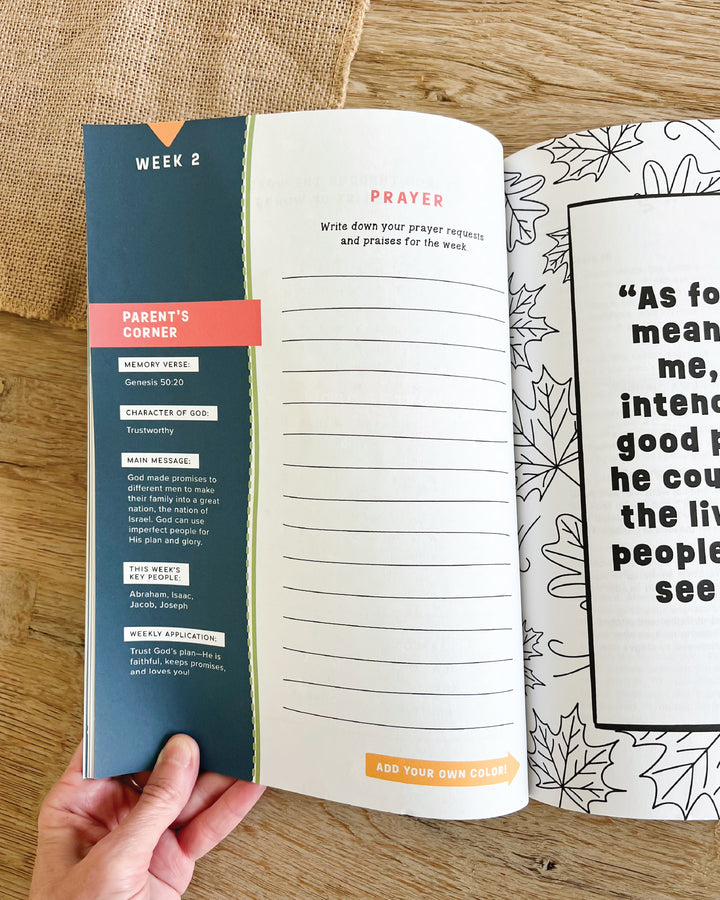 WEEK 2
PARENT'S
CORNER
MEMORY VERSE:
Genesis 50:20
CHARACTER OF GOD:
Trustworthy
MAIN MESSAGE:
God made promises to
different men to make
their family into a great
nation, the nation of
Israel. God can use
imperfect people for
His plan and glory.
THIS WEEK'S
KEY PEOPLE:
Abraham, Isaac,
Jacob, Joseph
WEEKLY APPLICATION:
Trust God's plan—He is
faithful, keeps promises,
and loves you!
PRAYER
Write down your prayer requests
and praises for the week.
ADD YOUR OWN COLOR!
"As fo
mean
me,
intend
good p
he cou
the liv
people
see